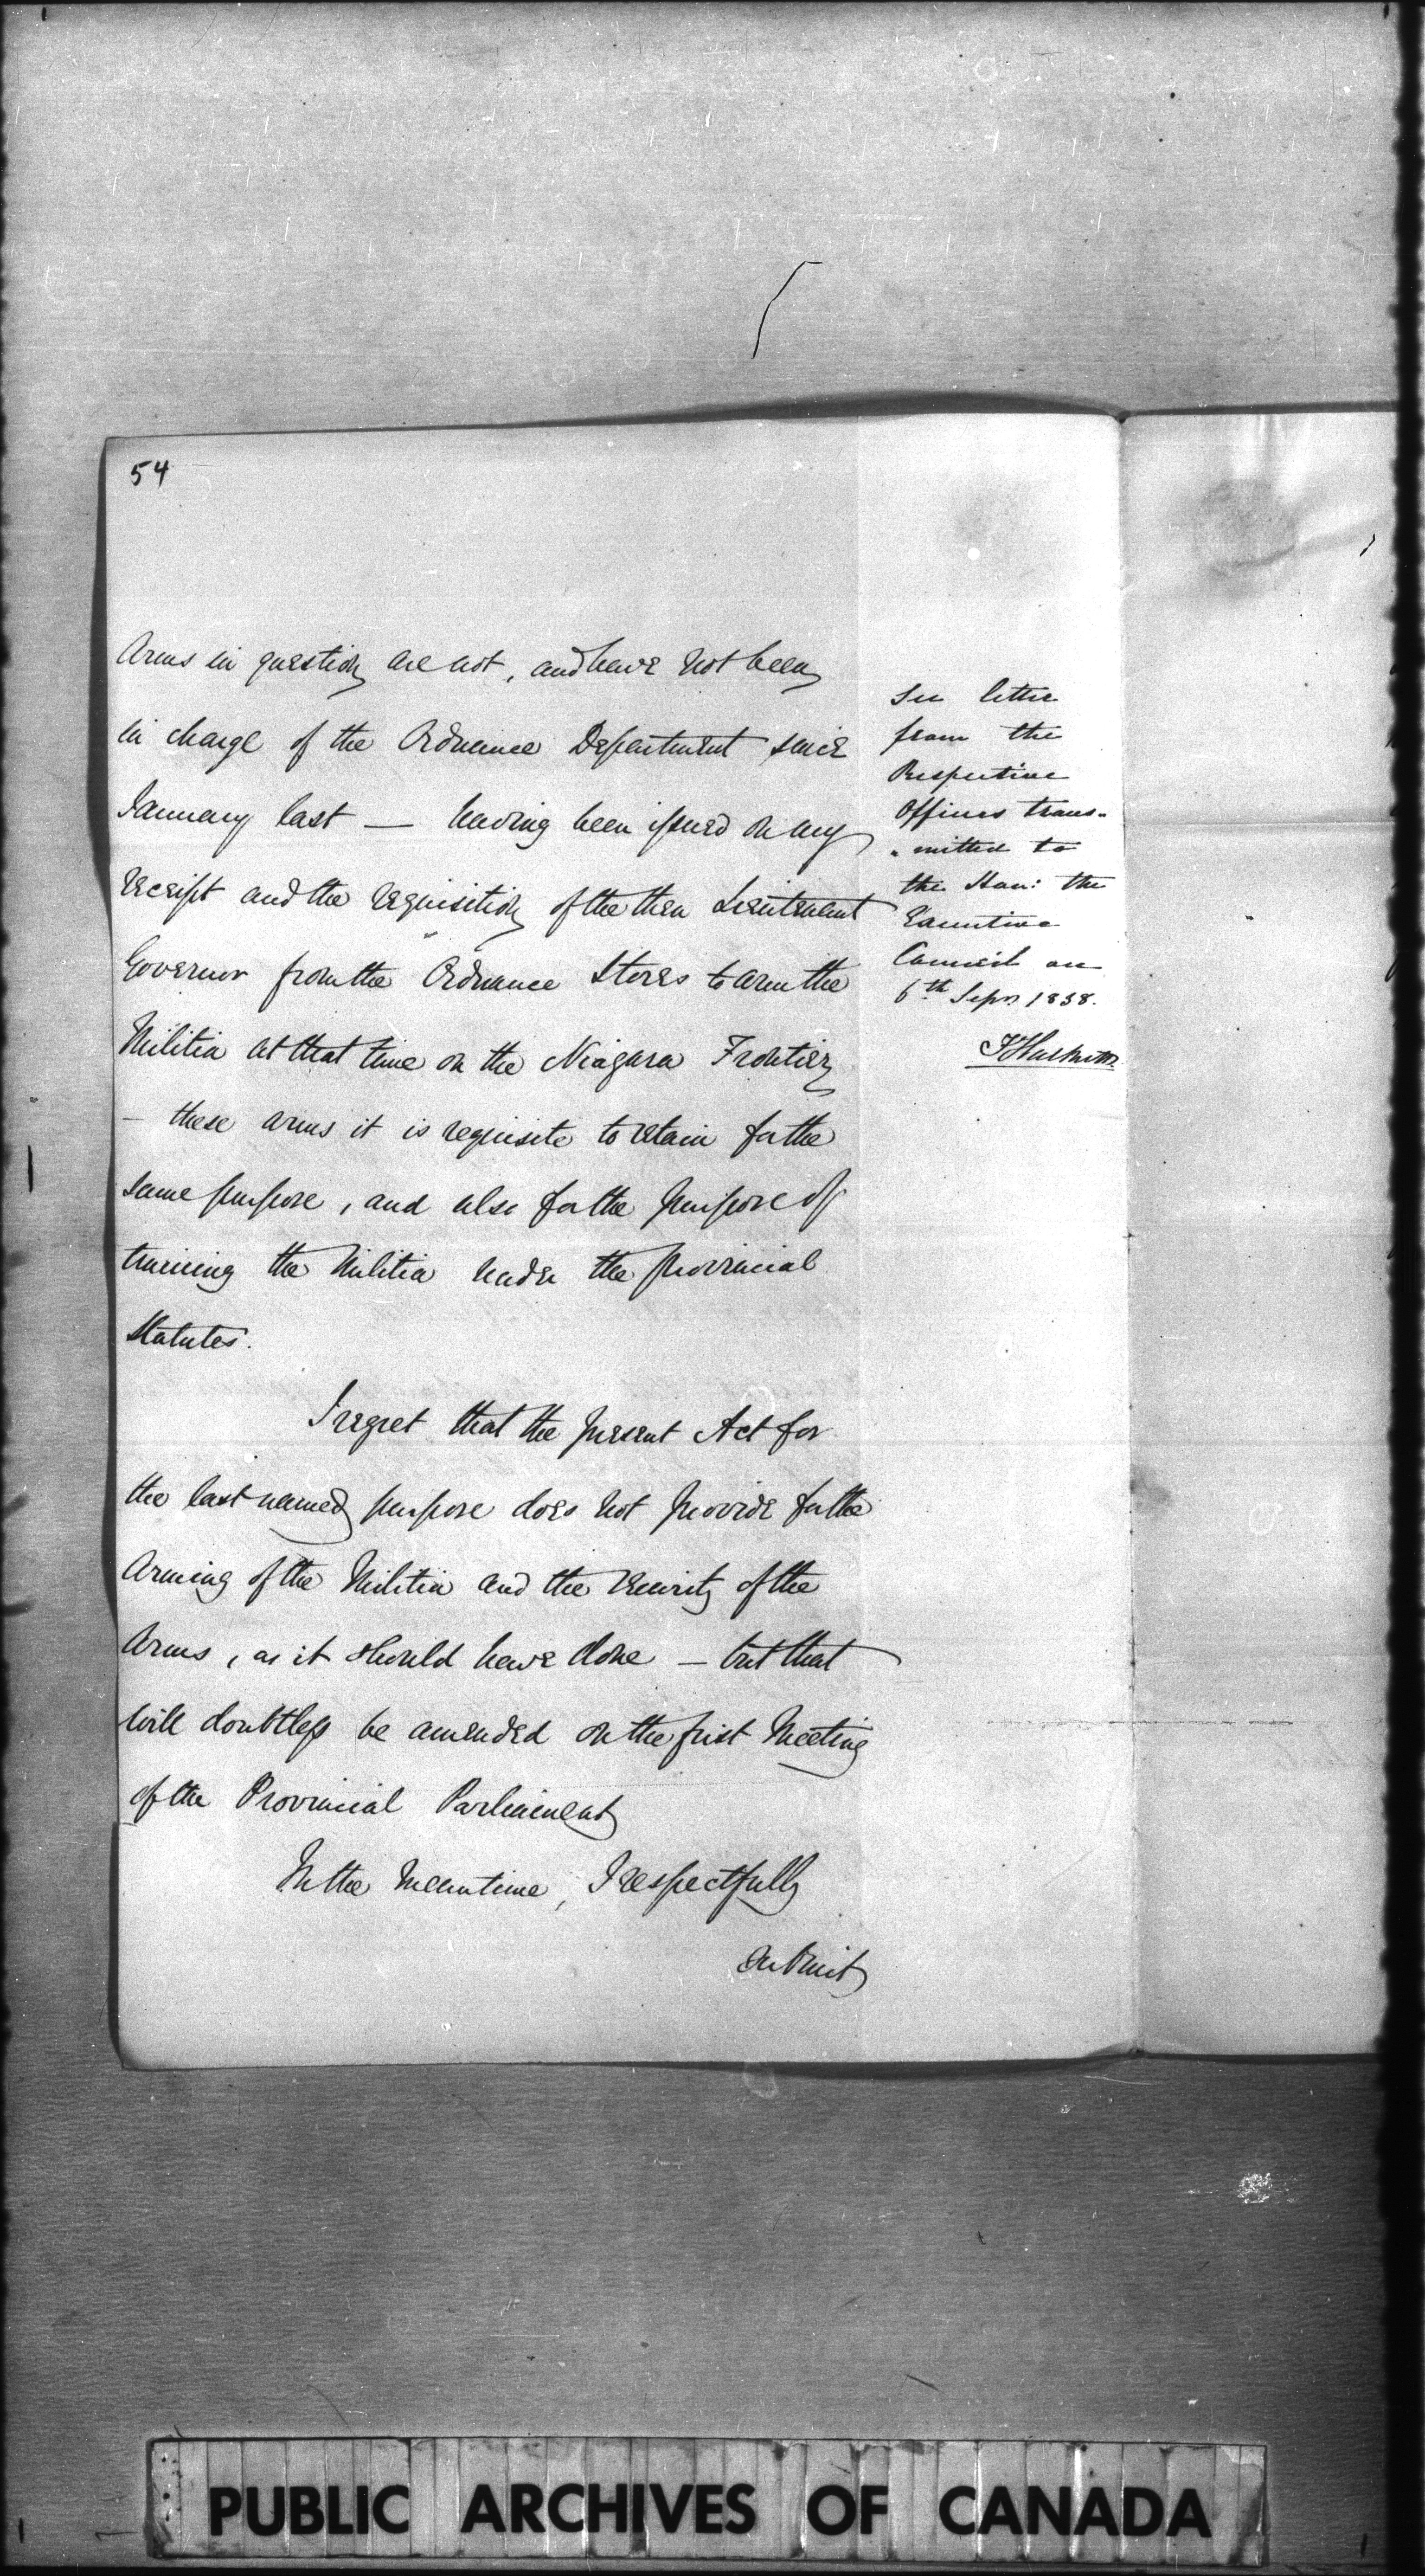 54
Arms in question are not, and have not been
in charge of the Ordnance Department since
January last — having been issued on my
receipt and the requisition of the then Lieutenant
Governor from the Ordnance Stores to arm the
Militia at that time on the Niagara Frontier
— these arms it is requisite to retain for the
same purpose, and also for the purpose of
training the Militia under the provincial
Statutes.
I regret that the present Act for
the last named purpose does not provide for the
Arming of the Militia and the security of the
Arms, as it should have done — but that
will doubtless be amended on the first Meeting
of the Provincial Parliament
In the meantime, I respectfully
submit
See letter
from the
Respective
Officers trans-
-mitted to
the Hon: the
Executive
Council on
6th Sepr 1838.
PUBLIC ARCHIVES OF CANADA